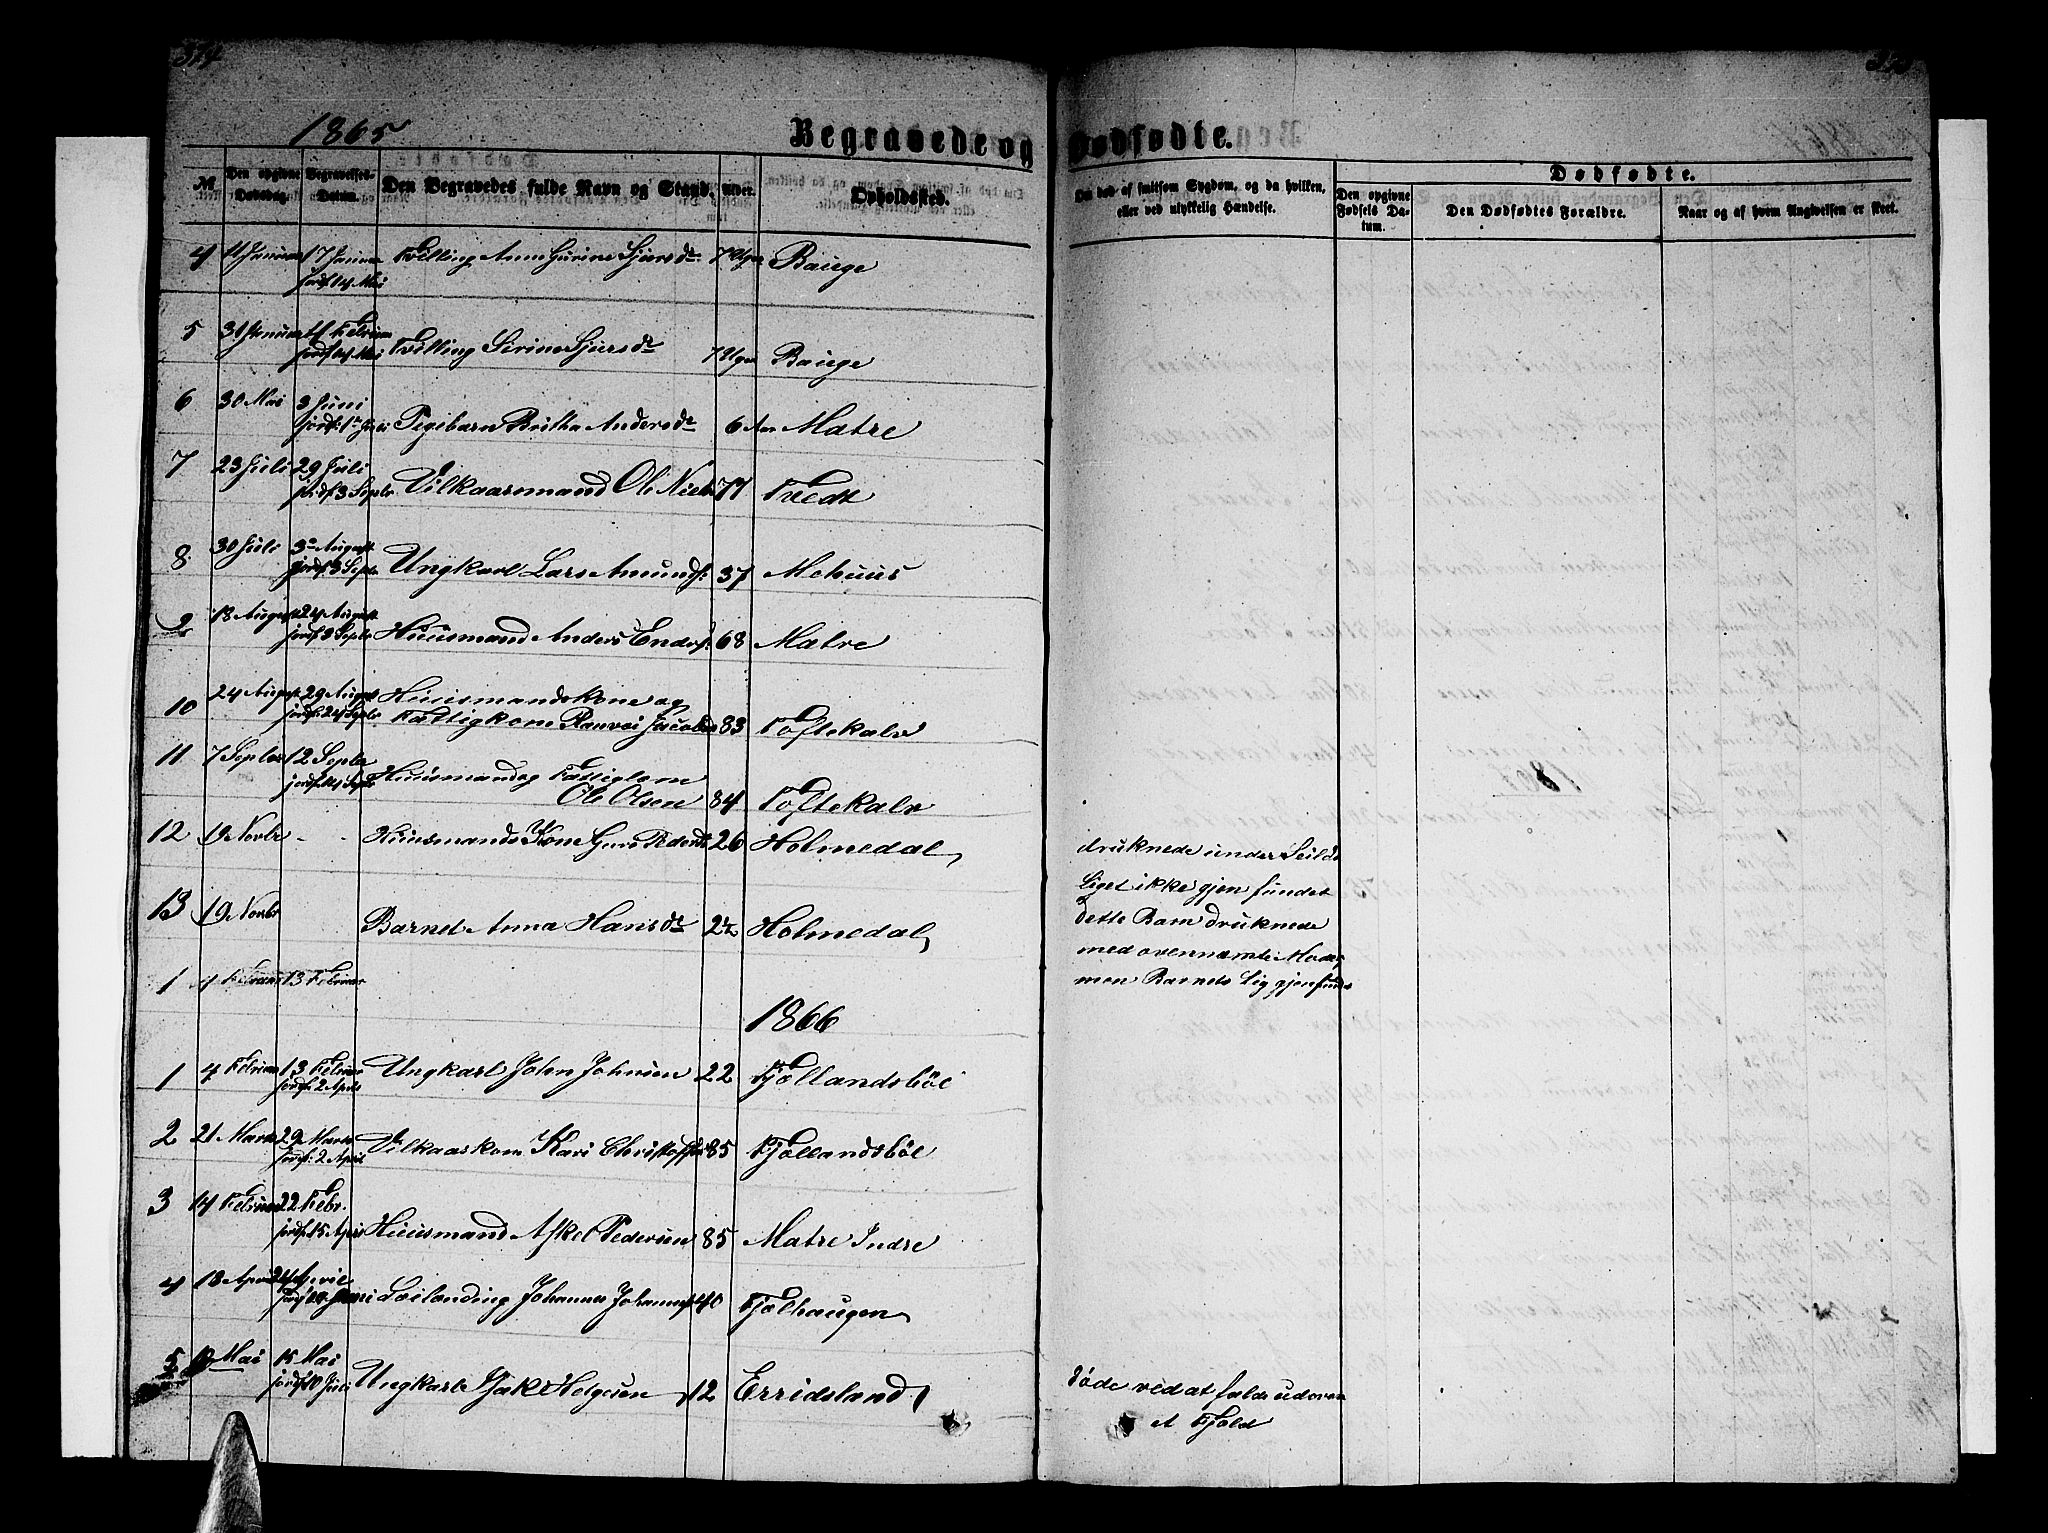 374
1865
Begravede og Dødfødte.
№ Den opgivne Dødsdag. Begravelses-Datum. Den Begravedes fulde Navn og Stand. Alder. Opholdssted. Om død af smitsom Sygdom, og da hvilken, eller ved ulykkelig Hændelse. Dødfødte.
Den opgivne Fødsels Datum. Den Dødfødtes Forældre. Naar og af hvem Angivelsen er skeet.
4 17 Januar Tvilling Anna Gurine Sjursdr 7 Uger Bauge
jordf. 14 Mai
5 31 Januar Februar Tvilling Sirine Sjursdr 7 Uger Bauge
jordf. 14 Mai
6 30 Mai 3 Juni Pigebarn Britha Andersdr 6 Aar Matre
7 23 Juli 29 Juli Vilkaarsmand Ole Niels 77 Tvedt
jordf. 3 Septr
8 30 Juli 3 August Ungkarl Lars Amunds. 37 Mehuus
jordf. 3 Septr
18 August 24 August Huusmand Anders Enders. 68 Matre
jordf. 3 Septr
10 24 August 29 August Huusmandskone og
jordf. 24 Septr Fattigkone Ranvei Jacobs 83 Toftekalv
11 7 Septbr 12 Septbr Huusmand og Fattiglem
jordf. 24 Septr Ole Olsen 84 Toftekalv
12 19 Novbr - - Huusmands Kone Guro Pedersdr 26 Holmedal druknede under Seilds
Liget ikke gjenfundet
13 19 Novbr Barnet Anna Hansdr 2 Holmedal dette Barn druknede
med ovennæmte Moder
men Barnets Lig gjenfunds
1 4 Februar 13 Februar
1866
1 4 Februar 13 Februar Ungkarl John Johnsen 22 Fjællandsbøe
jordf. 2 April
2 21 Marts 29 Marts Vilkaarskone Kari Christoffer 85 Fjællandsbøe
jordf. 2 April
3 14 Februar 22 Febr. Huusmand Askel Pedersen 85 Matre Indre
jordf. 15 April
4 18 April 24 April Leilænding Johannes Johannes 40 Fjælhaugen
5 Mai 15 Mai Ungkarl Isak Helgesen 12 Erridsland døde ved at falde udover
jordf. 10 Juni et Fjeld
1867